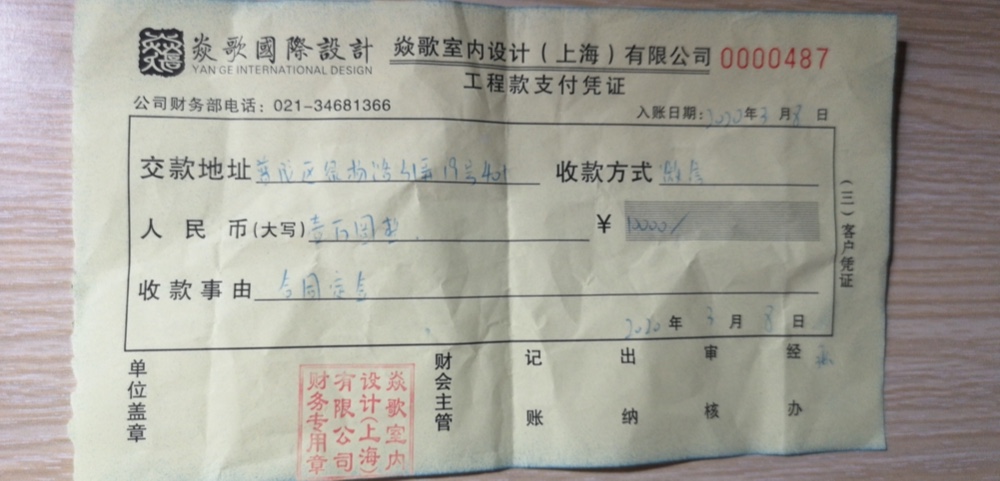 焱歌國際設計
YAN GE INTERNATIONAL DESIGN
焱歌室内设计(上海)有限公司 0000487
工程款支付凭证
公司财务部电话：021-34681366
入账日期：2020年3月8日
交款地址 19号401 收款方式
人民币(大写)壹万圆整 ¥ 10000/
收款事由 合同定金
2020年3月8日
(三)客户凭证
单位盖章
财会主管
记账
出纳
审核
经办
焱歌室内
设计(上海)
有限公司
财务专用章